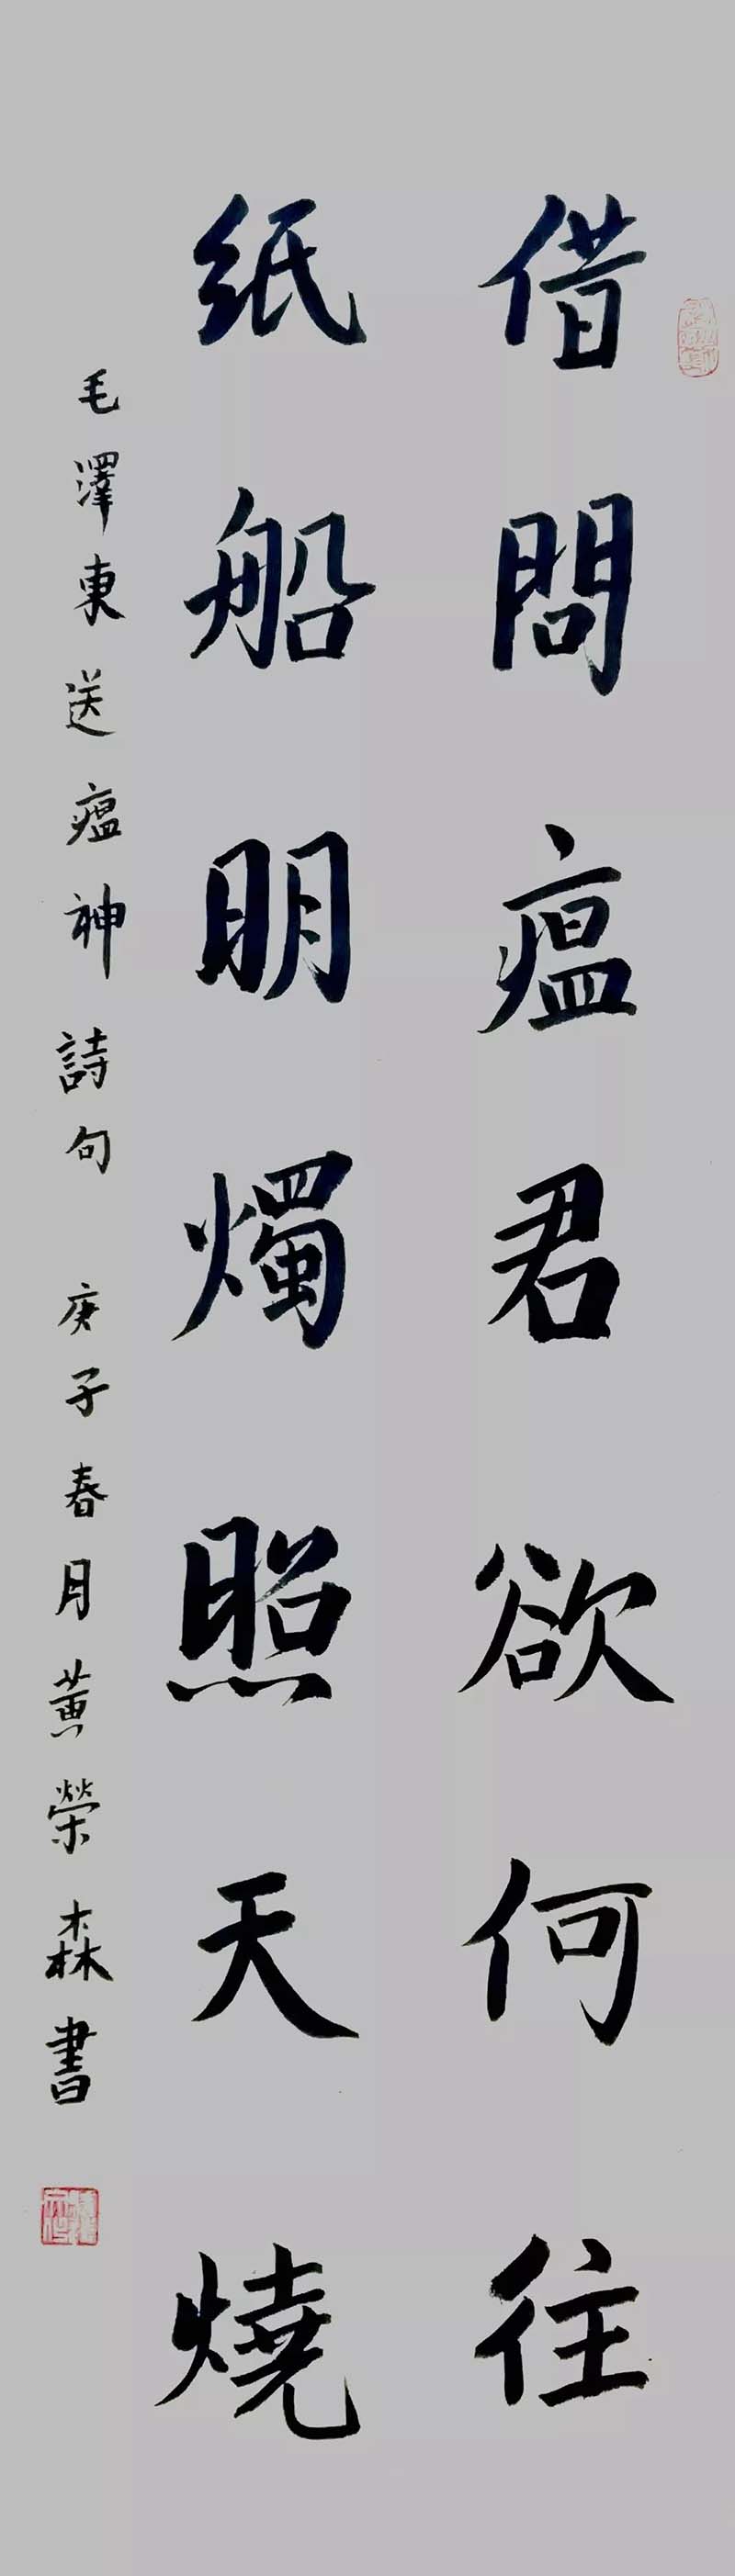 借問瘟君欲何往
纸船明燭照天燒
毛澤東送瘟神詩句 庚子春月黄榮森書